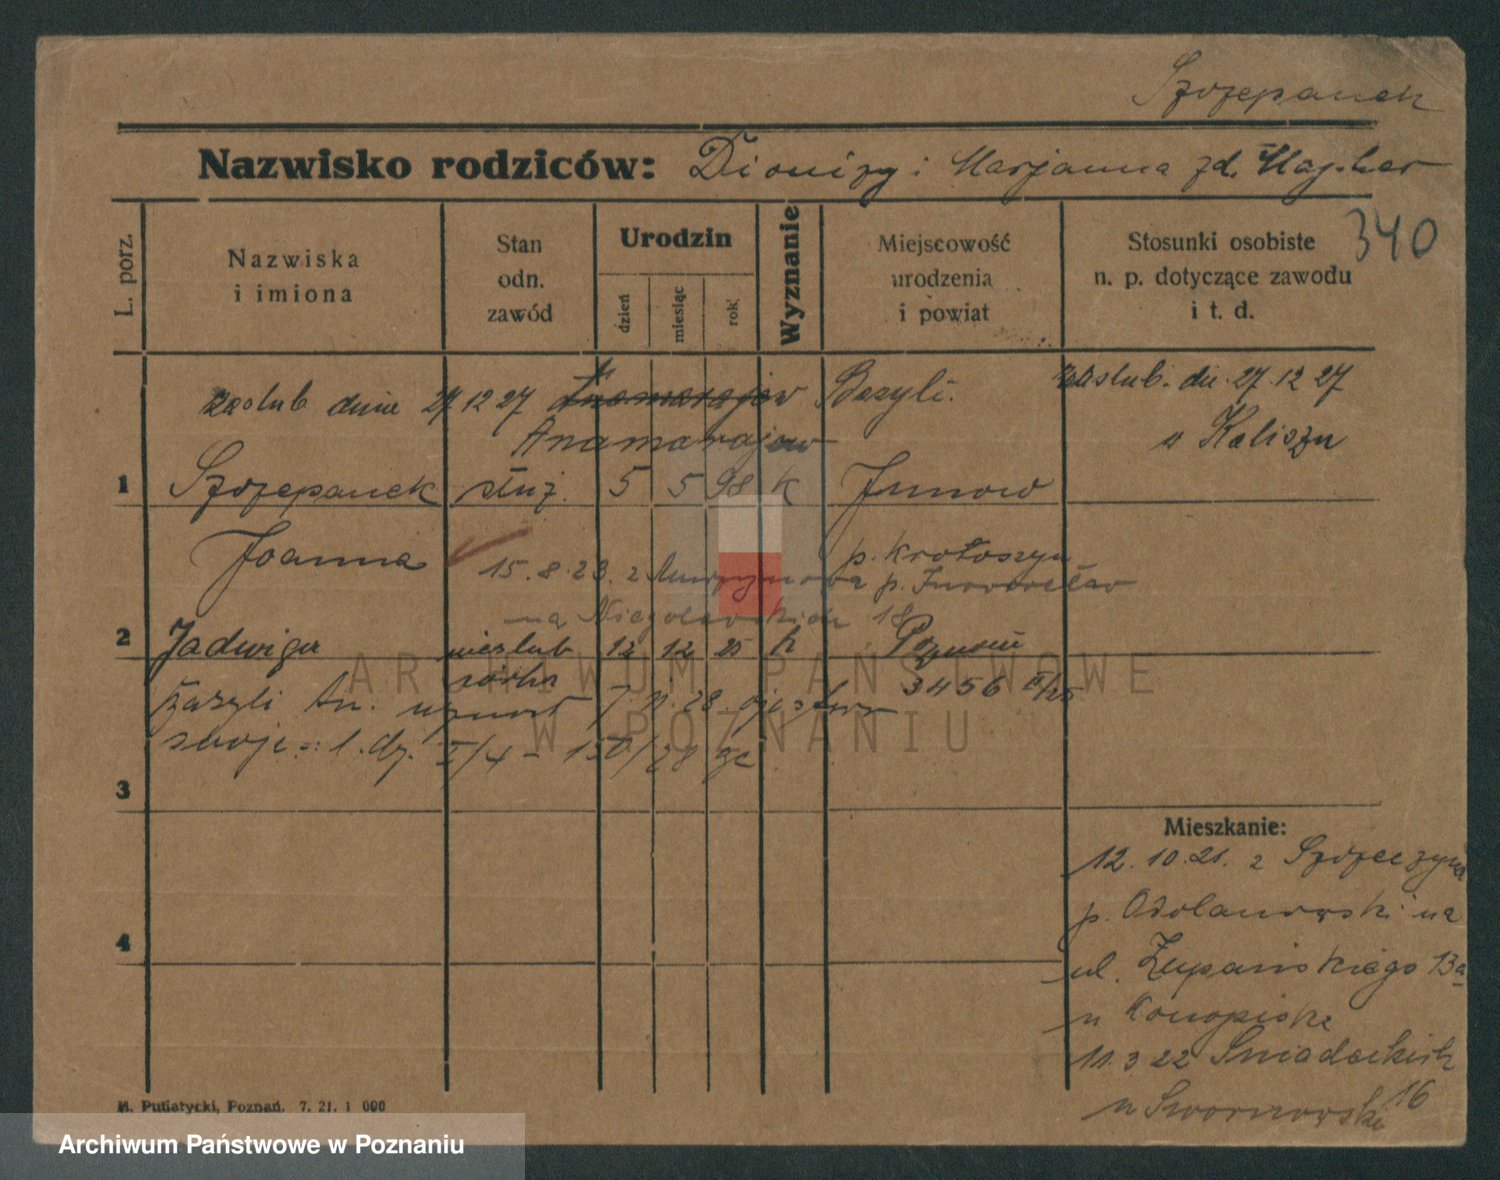 Szczepanek
Nazwisko rodziców: Dionizy i Marjanna zd. Majcher
340
L. porz.
Nazwiska
i imiona
Stan
odn.
zawód
Urodzin
dzień
miesiąc
rok
Wyznanie
Miejscowość
urodzenia
i powiat
Stosunki osobiste
n. p. dotyczące zawodu
i t. d.
zaślub dnia 27 12 27 Bazyli.
zaślub. dn. 27.12 27
w Kaliszu
1 Szczepanek służ. 5 5 98 k
Joanna
p. Krotoszyn
15.8.23. z Murzynowa p. Inowrocław
na Niegolewskich 18
2 Jadwiga nieślub 12 12 25 k Poznań
córka
3456 II/25
Bazyli An. uznał 7. 11. 28. ojcostwo
swoje l. dz. I/4 – 150/28
3
4
Mieszkanie:
12. 10. 21. z
p. Odolanowski na
ul. Żupańskiego 13a
u Konopiske
11. 3 22 Śniadeckich
16
u Swornowski
M. Putiatycki, Poznań. 7. 21. 1 000
ARCHIWUM PAŃSTWOWE
W POZNANIU
Archiwum Państwowe w Poznaniu